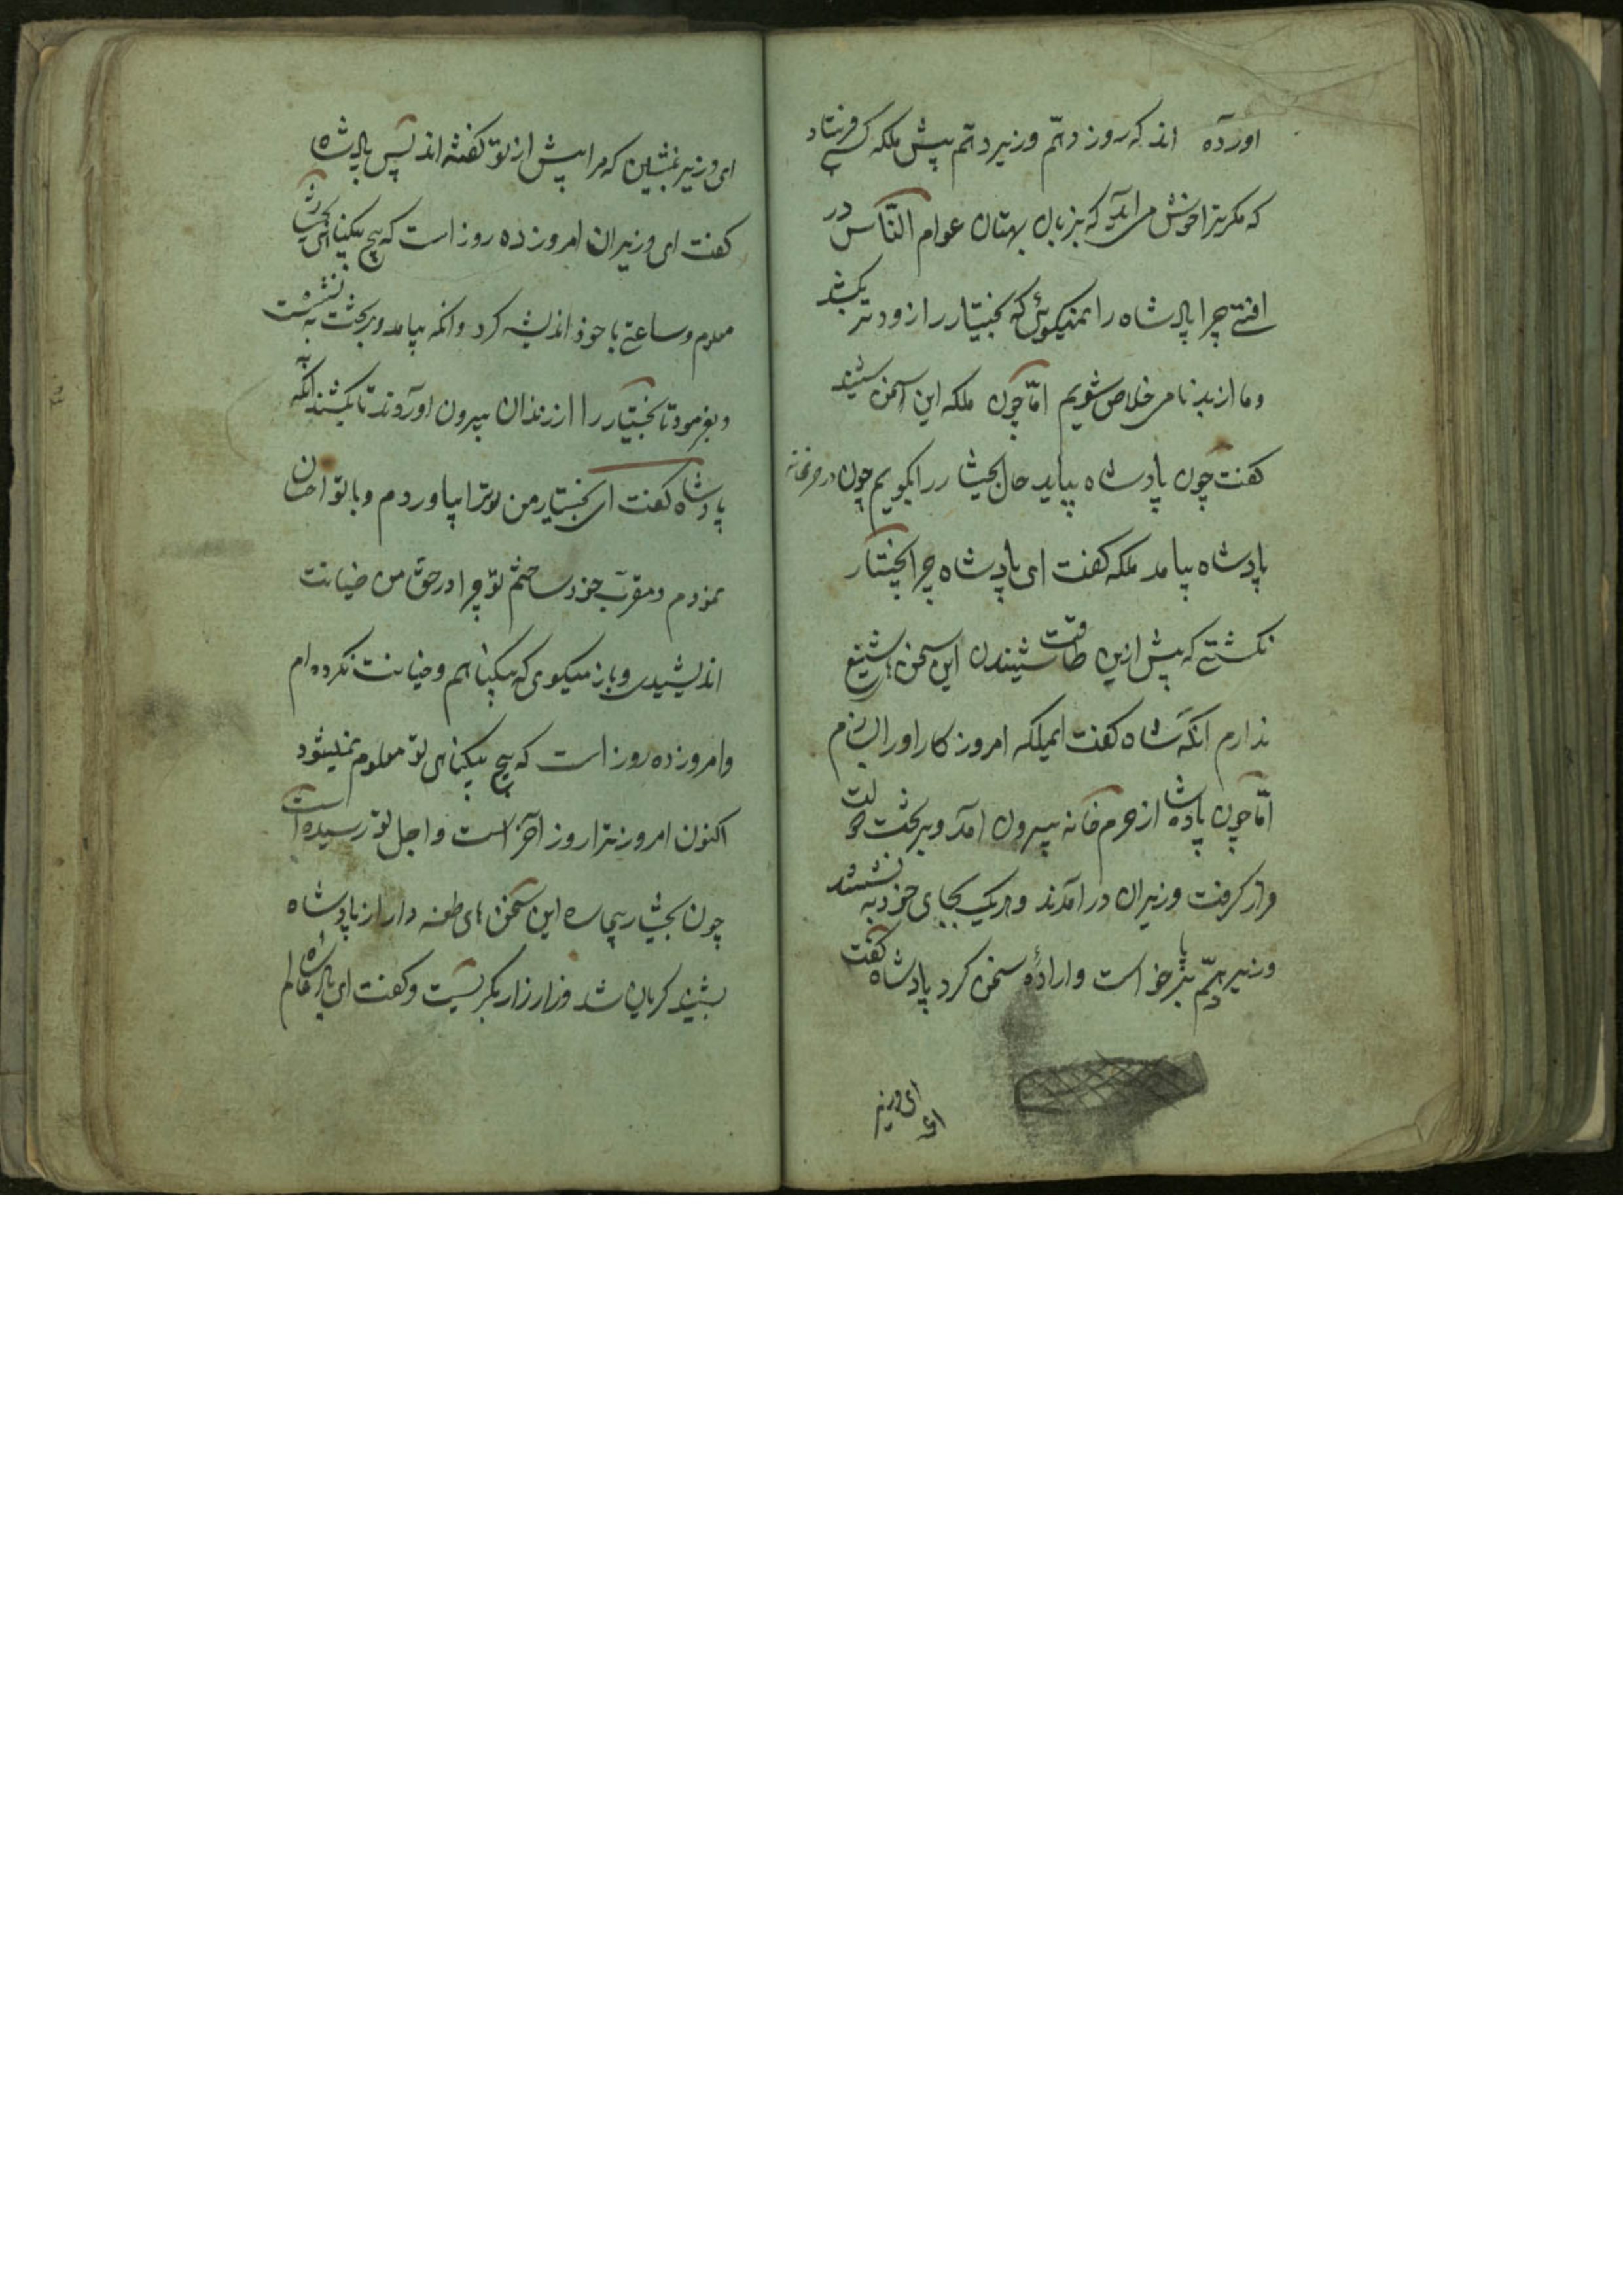 اورده اند که روز دهم وزیر دهم پیش ملکه کس فرستاد
که مکر ترا خوش می آید که بزبان بهتان عوام النّاس در
افتی چرا پادشاه را نمیکوئی که بختیار را زودتر بکشد
وما از بدنامی خلاص شویم امّا چون ملکه این سخن شنید
کفت چون پادشاه بیاید حال بختیار را بکویم چون در حرمخانه
پادشاه بیامد ملکه کفت ای پادشاه چرا بختیار
نکشتی که پیش ازین طاقت شنیدن این سخن شنیع
ندارم انکه شاه کفت ایملکه امروز کار اورا بسازم
امّا چون پادشاه از حرم خانه بیرون آمد وبر تخت دولت
قرار کرفت وزیران در آمدند وهر یک بجای خود به نشستند
وزیر دهم بر پا خاست وارادهٔ سخن کرد پادشاه کفت
ای وزیر
ای وزیر بنشین که مرا پیش از تو کفته اند پس پادشاه
کفت ای وزیران امروز ده روز است که هیچ بیکناهی بختیار
معلوم وساعتی با خود اندیشه کرد وانکه بیامد وبر تخت به نشست
وبفرمود تا بختیار را از زندان بیرون اوروند تا بکشند آنکه
پادشاه کفت ای بختیار من ترا بیاوردم وبا تو احسان
نمودم ومقرب خود ساختم تو چرا در حق من خیانت
اندیشیدی وباز میکوی که بیکناهم وخیانت نکرده ام
وامروز ده روز است که هیچ بیکناهی تو معلوم نمیشود
اکنون امروز ترا روز آخر است واجل تو رسیده است
چون بختیار بیچاره این سخن های طعنه دار از پادشاه
بشنید کریان شد وزار زار بکریست وکفت ای پادشاه عالم